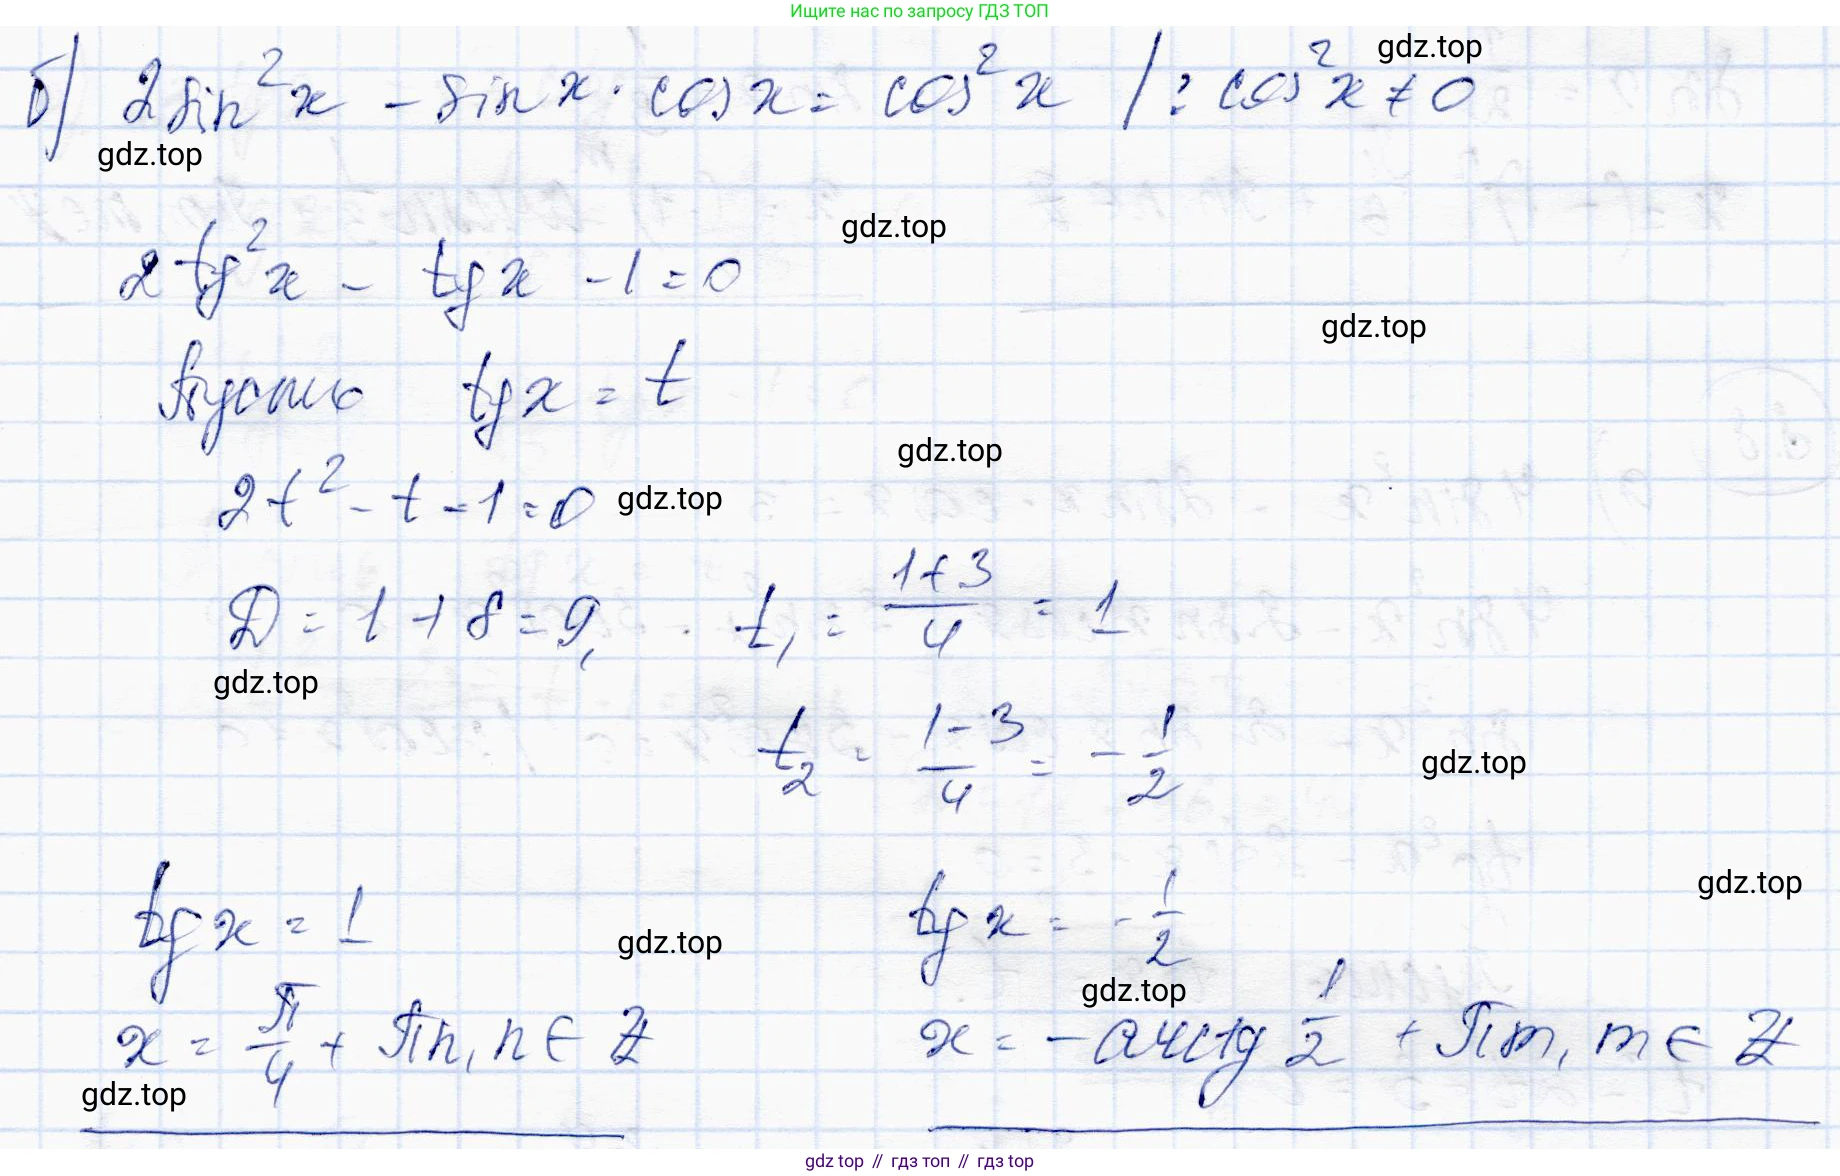 Ищите нас по запросу ГДЗ ТОП
gdz.top
б) 2sin²x - sin x · cos x = cos²x / : cos²x ≠ 0
gdz.top
gdz.top
2tg²x - tg x - 1 = 0
gdz.top
Пусть tg x = t
gdz.top
2t² - t - 1 = 0 gdz.top
D = 1 + 8 = 9, t₁ = (1+3)/4 = 1
gdz.top
t₂ = (1-3)/4 = -1/2 gdz.top
gdz.top
tg x = 1 gdz.top tg x = -1/2
gdz.top
x = π/4 + πn, n ∈ Z x = -arctg 1/2 + πm, m ∈ Z
gdz.top
gdz top // гдз топ // гдз top